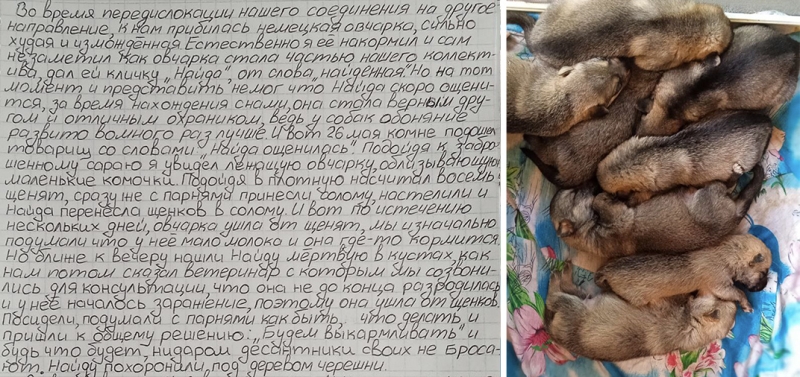 Во время передислокации нашего соединения на другое
направление, к нам прибилась немецкая овчарка, сильно
худая и измождённая. Естественно я её накормил и сам
незаметил как овчарка стала частью нашего коллект-
ива, дал ей кличку „Найда", от слова „найденная". Но на тот
момент и представить немог что Найда скоро ощени-
тся, за время нахождения снами, она стала верным дру-
гом и отличным охраником, ведь у собак обоняние
развито вомного раз лучше. И вот 26 мая комне подошел
товарищ со словами: „Найда ощенилась". Подойдя к забро-
шенному сараю я увидел лежащую овчарку, облизывающую
маленькие комочки. Подойдя в плотную насчитал восемь
щенят, сразу же с парнями принесли солому, настелили и
Найда перенесла щенков в солому. И вот по истечению
нескольких дней, овчарка ушла от щенят, мы изначально
подумали что у неё мало молока и она где-то кормится.
Но ближе к вечеру нашли Найду мёртвую в кустах, как
нам потом сказал ветеринар с которым мы созвони-
лись для консультации, что она не до конца разродилась
и у неё началось заражение, поэтому она ушла от щенков.
Посидели, подумали с парнями как быть, что делать и
пришли к общему решению: „Будем выкармливать" и
будь что будет, нидаром десантники своих не броса-
ют. Найду похоронили, под деревом черешни.